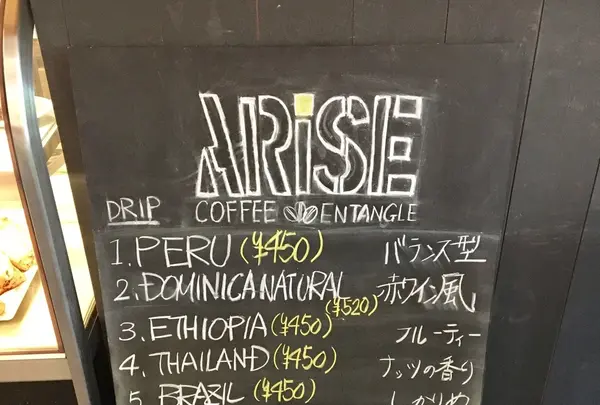 ARiSE
COFFEE ENTANGLE
DRIP
1. PERU (¥450) バランス型
2. DOMINICA NATURAL (¥520) 赤ワイン風
3. ETHIOPIA (¥450) フルーティー
4. THAILAND (¥450) ナッツの香り
5 BRAZIL (¥450)